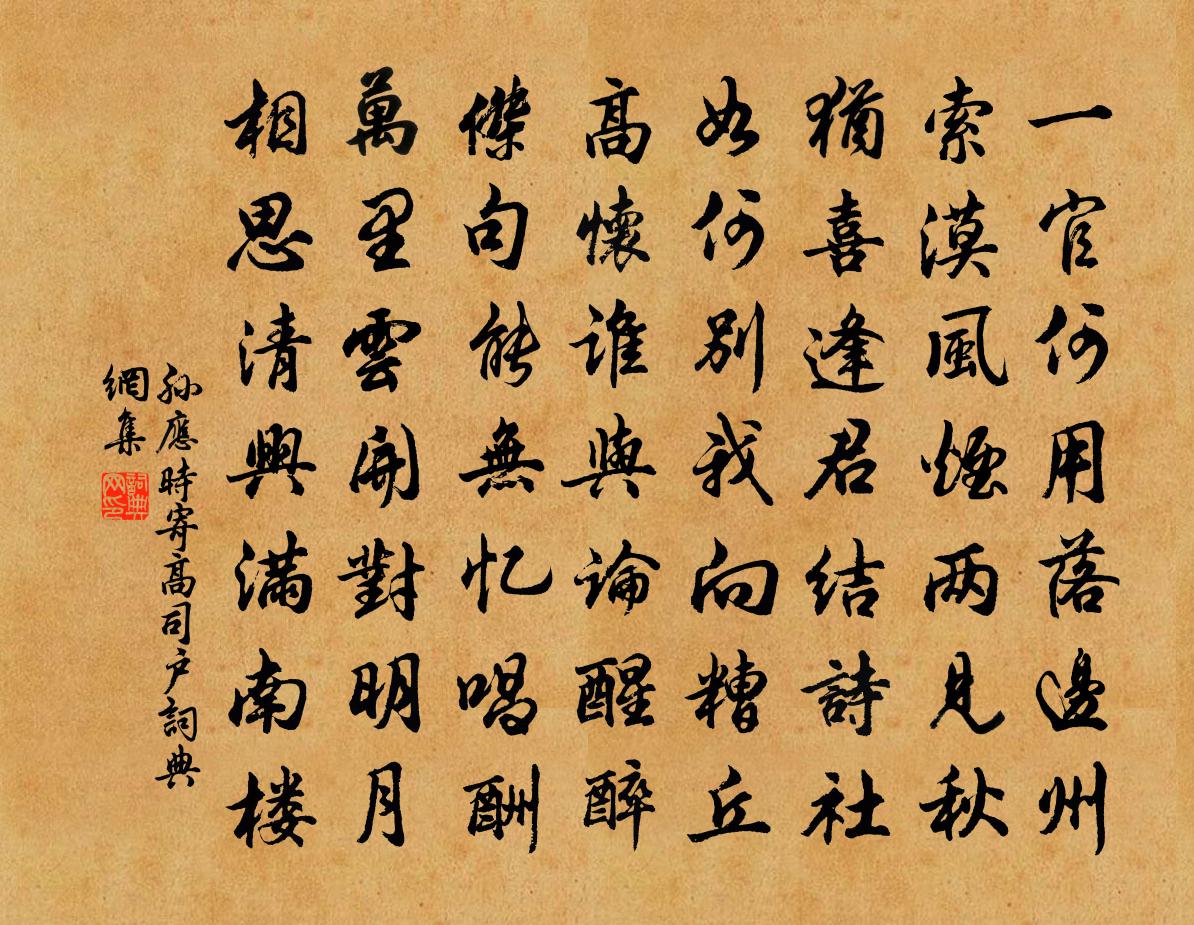 一官何用落邊州
索漠風煙两見秋
猶喜逢君結詩社
如何別我向糟丘
高懷誰與論醒醉
傑句能無忆唱酬
萬里雲開對明月
相思清興满南楼
孙應時寄高司户詞典
網集
詞典
网印